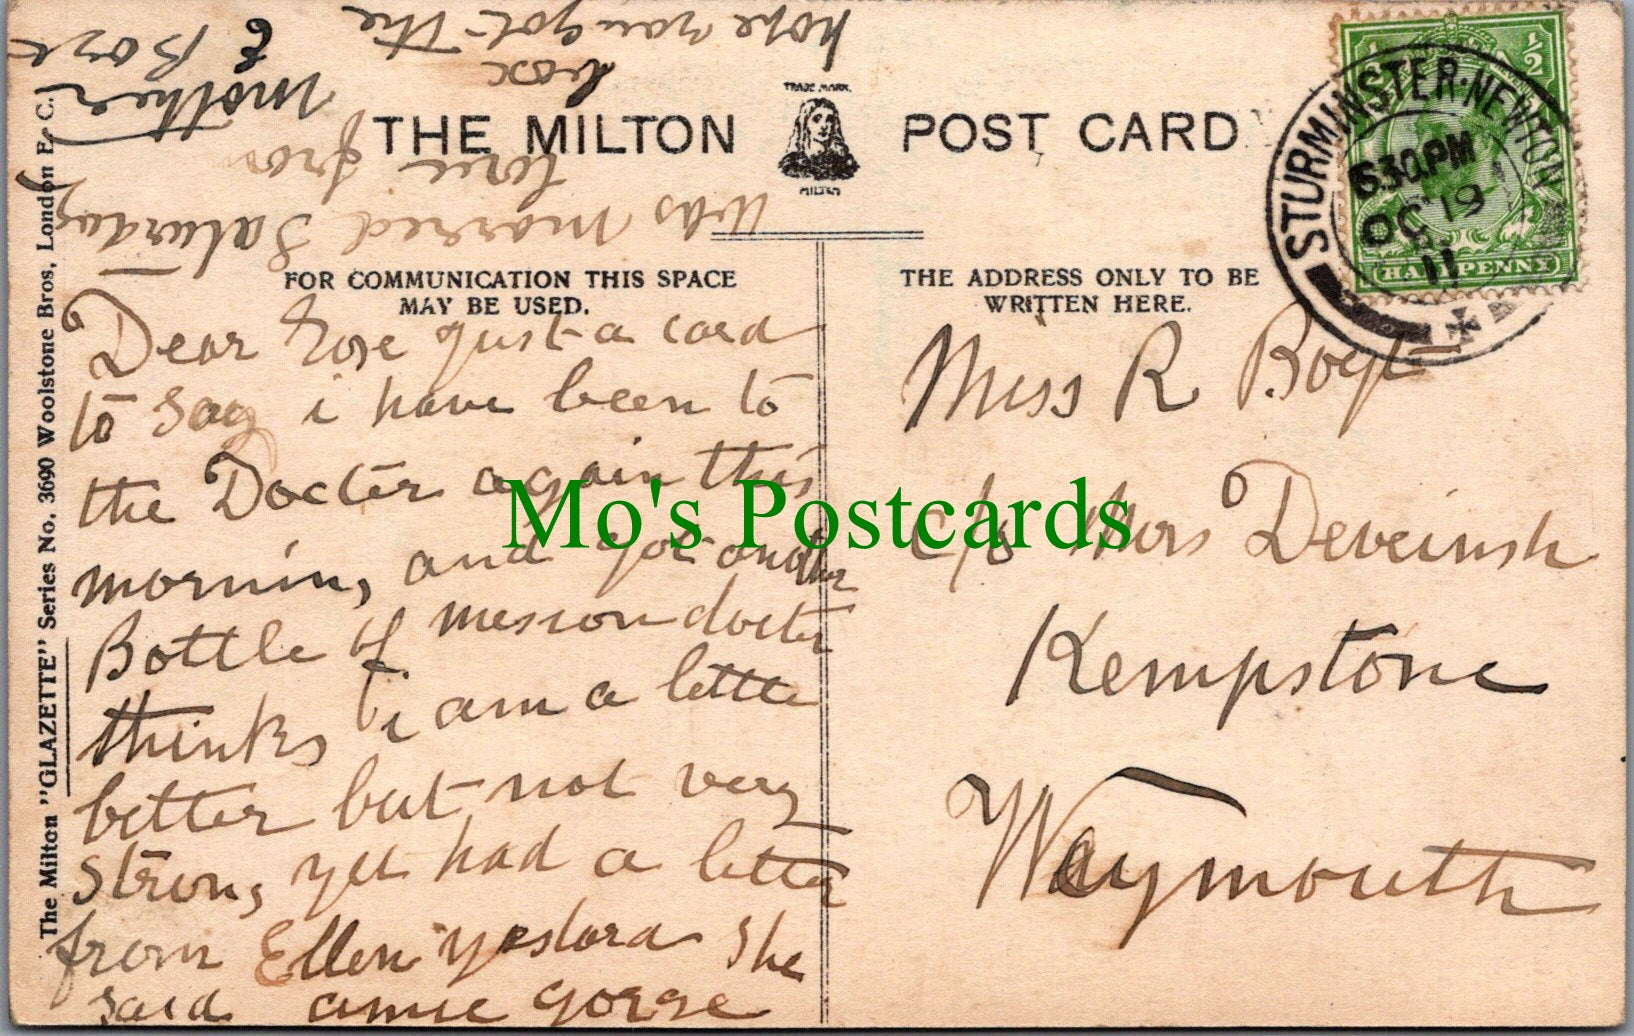 THE MILTON POST CARD
TRADE MARK.
MILTON
FOR COMMUNICATION THIS SPACE
MAY BE USED.
THE ADDRESS ONLY TO BE
WRITTEN HERE.
The Milton "GLAZETTE" Series No. 3690 Woolstone Bros, London E. C.
STURMINSTER·NEWTON
6 30 PM
OC 19
11
HALFPENNY
1/2
Dear Rose just a card
to say i have been to
the Docter again this
mornin, and got another
Bottle of mesion docter
thinks i am a lettle
better but not very
strong yet had a letter
from Ellen yesterda she
said annie gorge
was marred Saturday
love from
Mother
E Boyt
hope you got the
box
Miss R Boyt
c/o Mrs Deveinsh
Kempstone
Weymouth
Mo's Postcards